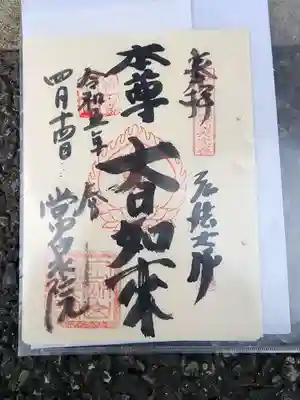 奉拝
弘法大師
本尊
大日如来
令和五年 春
四月十四日
常光院